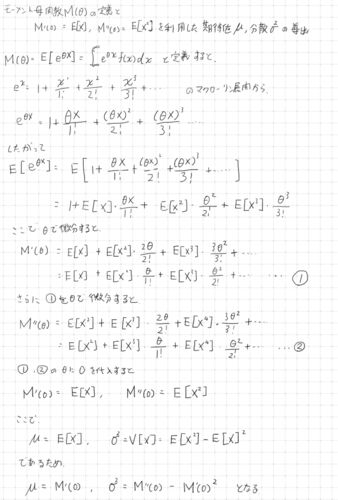 モーメント母関数M(θ)の定義と
M'(0) = E[X], M''(0) = E[X²]を利用した期待値μ, 分散σ²の導出
M(θ) = E[e^{θX}] = ∫e^{θx}f(x)dx と定義すると、
e^x = 1 + x¹/1! + x²/2! + x³/3! + ⋯ のマクローリン展開から
e^{θX} = 1 + θX/1! + (θX)²/2! + (θX)³/3! ⋯
したがって
E[e^{θX}] = E[1 + θX/1! + (θX)²/2! + (θX)³/3! + ⋯]
= 1 + E[X]·θX/1! + E[X²]·θ²/2! + E[X³]·θ³/3!
ここで θで微分すると
M'(θ) = E[X] + E[X²]·2θ/2! + E[X³]·3θ²/3! + ⋯
= E[X] + E[X²]·θ/1! + E[X³]·θ²/2! + ⋯ ⋯ ①
さらに ①をθで微分すると
M''(θ) = E[X²] + E[X³]·2θ/2! + E[X⁴]·3θ²/3! + ⋯
= E[X²] + E[X³]·θ/1! + E[X⁴]·θ²/2! + ⋯ ⋯ ②
①, ②のθに0を代入すると
M'(0) = E[X], M''(0) = E[X²]
ここで
μ = E[X], σ² = V[X] = E[X²] − E[X]²
であるため
μ = M'(0), σ² = M''(0) − M'(0)² となる